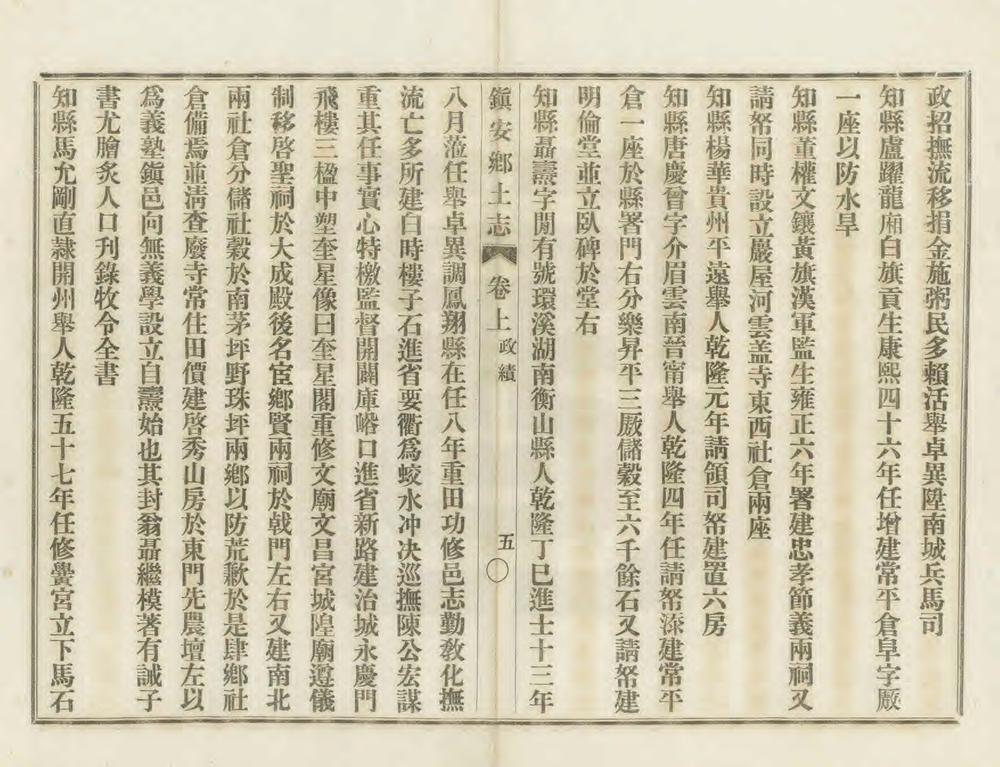 政招撫流移捐金施粥民多賴活舉卓異陞南城兵馬司
知縣盧躍龍廂白旗貢生康熙四十六年任增建常平倉阜字厫
一座以防水旱
知縣董權文鑲黃旗漢軍監生雍正六年署建忠孝節義兩祠又
請帑同時設立嚴屋河雲盖寺東西社倉兩座
知縣楊華貴州平遠舉人乾隆元年請領司帑建置六房
知縣唐慶曾字介眉雲南晉甯舉人乾隆四年任請帑添建常平
倉一座於縣署門右分樂昇平三厫儲穀至六千餘石又請帑建
明倫堂並立臥碑於堂右
知縣聶燾字閒有號環溪湖南衡山縣人乾隆丁巳進士十三年
鎭安鄉土志 卷上 政績 五 〇
八月蒞任舉卓異調鳳翔縣在任八年重田功修邑志勤敎化撫
流亡多所建白時樓子石進省要衢爲蛟水冲决巡撫陳公宏謀
重其任事實心特檄監督開闢庫峪口進省新路建治城永慶門
飛樓三楹中塑奎星像曰奎星閣重修文廟文昌宮城隍廟遵儀
制移啓聖祠於大成殿後名宦鄉賢兩祠於戟門左右又建南北
兩社倉分儲社穀於南茅坪野珠坪兩鄉以防荒歉於是肆鄉社
倉備焉並淸查廢寺常住田價建啓秀山房於東門先農壇左以
爲義塾鎭邑向無義學設立自燾始也其封翁聶繼模著有誡子
書尤膾炙人口刊錄牧令全書
知縣馬允剛直隸開州舉人乾隆五十七年任修黌宮立下馬石